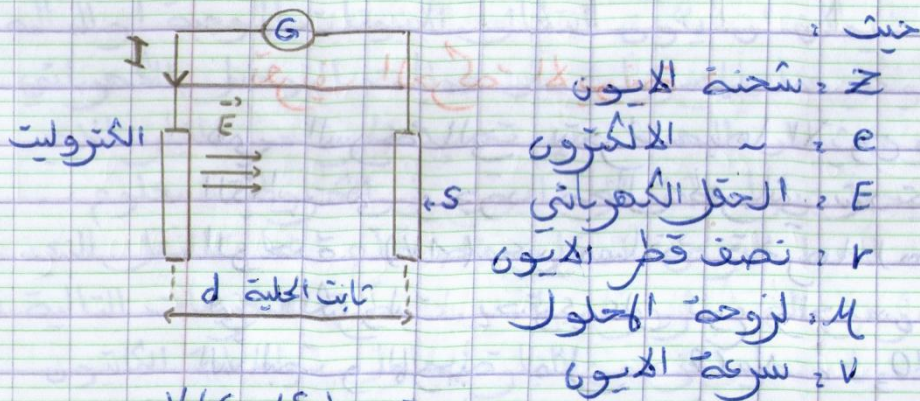 حيث :
Z : شحنة الايون
e : ~ الالكترون
E : الحقل الكهربائي
r : نصف قطر الايون
μ : لزوجة المحلول
v : سرعة الايون
G
I
E
الكتروليت
S
ثابت الخلية d